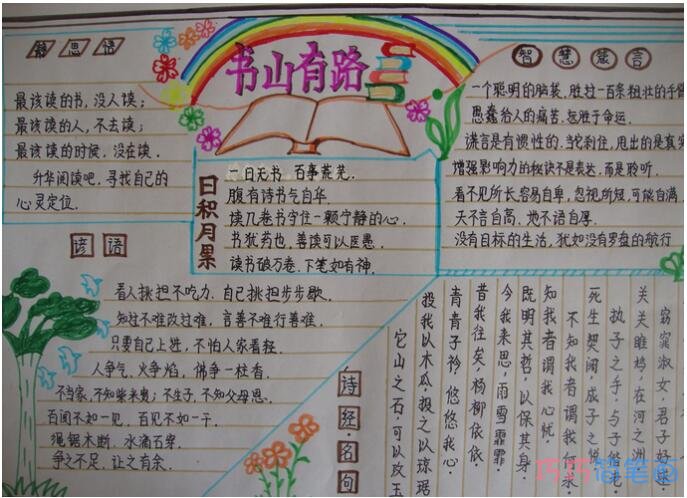 静思语
最该读的书,没人读;
最该读的人,不去读;
最该读的时候,没在读.
升华阅读吧,寻找自己的
心灵定位.
书山有路
智慧箴言
一个聪明的脑袋,胜过一百条粗壮的手臂
愚蠢给人的痛苦,远胜于命运.
谎言是有惯性的,当它刹住,甩出的是真实
增强影响力的秘诀不是表达,而是聆听.
看不见所长,容易自卑,忽视所短,可能自满.
天不言自高,地不语自厚.
没有目标的生活,犹如没有罗盘的航行
日积月累
一日无书,百事荒芜.
腹有诗书气自华.
读几卷书守住一颗宁静的心.
书犹药也,善读可以医愚.
读书破万卷,下笔如有神.
谚语
看人挑担不吃力,自己挑担步步歇.
知过不难改过难,言善不难行善难.
只要自己上进,不怕人家看轻.
人争气,火争焰,佛争一柱香.
不当家,不知柴米贵;不生子,不知父母恩.
百闻不如一见,百见不如一干.
绳锯木断,水滴石穿.
争之不足,让之有余.
诗经·名句
窈窕淑女,君子好逑.
关关雎鸠,在河之洲
执子之手,与子偕老
死生契阔,成子之悦
不知我者谓我何求
知我者谓我心忧,
既明其哲,以保其身.
今我来思,雨雪霏霏.
昔我往矣,杨柳依依.
青青子衿,悠悠我心.
投我以木瓜,报之以琼琚
它山之石,可以攻玉
巧巧简笔画